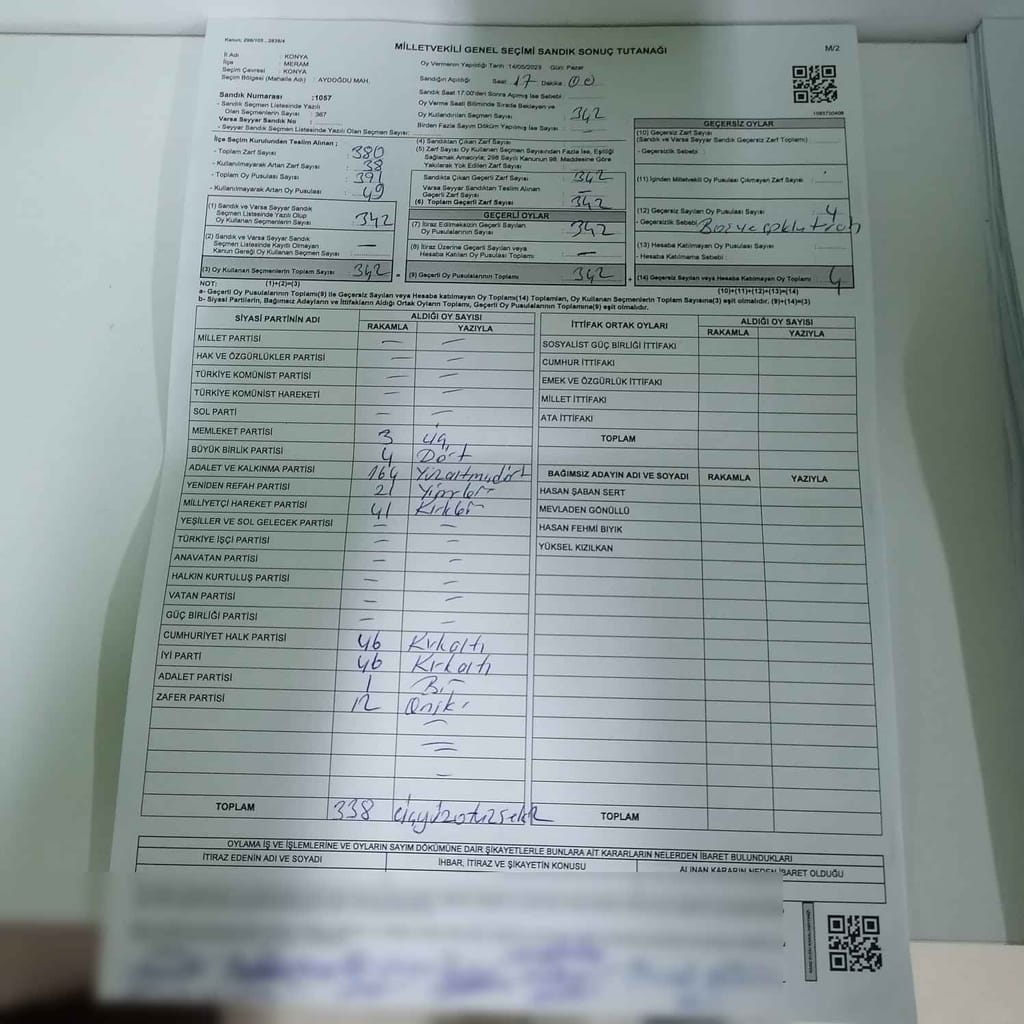 Kanun: 298/105 , 2839/4
MİLLETVEKİLİ GENEL SEÇİMİ SANDIK SONUÇ TUTANAĞI
M/2
İl Adı : KONYA
İlçe : MERAM
Seçim Çevresi : KONYA
Seçim Bölgesi (Mahalle Adı) : AYDOĞDU MAH.
Oy Vermenin Yapıldığı Tarih :14/05/2023 Gün: Pazar
Sandığın Açıldığı Saat 17 Dakika 00
Sandık Saat 17:00'den Sonra Açılmış İse Sebebi
Oy Verme Saati Bitiminde Sırada Bekleyen ve
Oy Kullandırılan Seçmen Sayısı : 342
Birden Fazla Sayım Döküm Yapılmış İse Sayısı : —
Sandık Numarası :1057
- Sandık Seçmen Listesinde Yazılı
Olan Seçmenlerin Sayısı : 367
Varsa Seyyar Sandık No :
- Seyyar Sandık Seçmen Listesinde Yazılı Olan Seçmen Sayısı:
İlçe Seçim Kurulundan Teslim Alınan ;
- Toplam Zarf Sayısı : 380
- Kullanılmayarak Artan Zarf Sayısı : 38
- Toplam Oy Pusulası Sayısı : 391
- Kullanılmayarak Artan Oy Pusulası : 49
(1) Sandık ve Varsa Seyyar Sandık
Seçmen Listesinde Yazılı Olup
Oy Kullanan Seçmenlerin Sayısı : 342
(2) Sandık ve Varsa Seyyar Sandık
Seçmen Listesinde Kayıtlı Olmayan
Kanun Gereği Oy Kullanan Seçmen Sayısı : —
(3) Oy Kullanan Seçmenlerin Toplam Sayısı : 342
(4) Sandıktan Çıkan Zarf Sayısı
(5) Zarf Sayısı Oy Kullanan Seçmen Sayısından Fazla İse, Eşitliği
Sağlamak Amacıyla; 298 Sayılı Kanunun 98. Maddesine Göre
Yakılarak Yok Edilen Zarf Sayısı
Sandıkta Çıkan Geçerli Zarf Sayısı : 342
Varsa Seyyar Sandıktan Teslim Alınan
Geçerli Zarf Sayısı : —
(6) Toplam Geçerli Zarf Sayısı : 342
GEÇERLİ OYLAR
(7) İtiraz Edilmeksizin Geçerli Sayılan
Oy Pusulasının Sayısı : 342
(8) İtiraz Üzerine Geçerli Sayılan veya
Hesaba Katılan Oy Pusulası Toplamı : —
(9) Geçerli Oy Pusulalarının Toplamı : 342
1083730408
GEÇERSİZ OYLAR
(10) Geçersiz Zarf Sayısı
(Sandık ve Varsa Seyyar Sandık Geçersiz Zarf Toplamı) :
- Geçersizlik Sebebi :
(11) İçinden Milletvekili Oy Pusulası Çıkmayan Zarf Sayısı :
(12) Geçersiz Sayılan Oy Pusulası Sayısı : 4
- Geçersizlik Sebebi :
(13) Hesaba Katılmayan Oy Pusulası Sayısı :
- Hesaba Katılmama Sebebi :
(14) Geçersiz Sayılan veya Hesaba Katılmayan Oy Toplamı : 4
NOT: (1)+(2)=(3) (10)+(11)+(12)+(13)=(14)
a- Geçerli Oy Pusulalarının Toplamı(9) ile Geçersiz Sayılan veya Hesaba katılmayan Oy Toplamı(14) Toplamları, Oy Kullanan Seçmenlerin Toplam Sayısına(3) eşit olmalıdır. (9)+(14)=(3)
b- Siyasi Partilerin, Bağımsız Adayların ve İttifakların Aldığı Ortak Oyların Toplamı, Geçerli Oy Pusulalarının Toplamına(9) eşit olmalıdır.
SİYASİ PARTİNİN ADI ALDIĞI OY SAYISI
RAKAMLA YAZIYLA
MİLLET PARTİSİ — —
HAK VE ÖZGÜRLÜKLER PARTİSİ — —
TÜRKİYE KOMÜNİST PARTİSİ — —
TÜRKİYE KOMÜNİST HAREKETİ — —
SOL PARTİ — —
MEMLEKET PARTİSİ 3 üç
BÜYÜK BİRLİK PARTİSİ 4 Dört
ADALET VE KALKINMA PARTİSİ 164 Yüzaltmışdört
YENİDEN REFAH PARTİSİ 21 Yirmibir
MİLLİYETÇİ HAREKET PARTİSİ 41 Kırkbir
YEŞİLLER VE SOL GELECEK PARTİSİ — —
TÜRKİYE İŞÇİ PARTİSİ — —
ANAVATAN PARTİSİ — —
HALKIN KURTULUŞ PARTİSİ — —
VATAN PARTİSİ — —
GÜÇ BİRLİĞİ PARTİSİ — —
CUMHURİYET HALK PARTİSİ 46 Kırkaltı
İYİ PARTİ 46 Kırkaltı
ADALET PARTİSİ 1 Bir
ZAFER PARTİSİ 12 Oniki
TOPLAM 338 üçyüzotuzsekiz
İTTİFAK ORTAK OYLARI ALDIĞI OY SAYISI
RAKAMLA YAZIYLA
SOSYALİST GÜÇ BİRLİĞİ İTTİFAKI
CUMHUR İTTİFAKI
EMEK VE ÖZGÜRLÜK İTTİFAKI
MİLLET İTTİFAKI
ATA İTTİFAKI
TOPLAM
BAĞIMSIZ ADAYIN ADI VE SOYADI RAKAMLA YAZIYLA
HASAN ŞABAN SERT
MEVLADEN GÖNÜLLÜ
HASAN FEHMİ BIYIK
YÜKSEL KIZILKAN
TOPLAM
OYLAMA İŞ VE İŞLEMLERİNE VE OYLARIN SAYIM DÖKÜMÜNE DAİR ŞİKAYETLERLE BUNLARA AİT KARARLARIN NELERDEN İBARET BULUNDUKLARI
İTİRAZ EDENİN ADI VE SOYADI İHBAR, İTİRAZ VE ŞİKAYETİN KONUSU ALINAN KARARIN NEDEN İBARET OLDUĞU